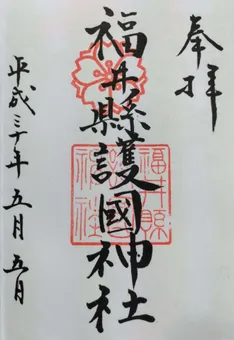 奉拝
福井縣護國神社
福井縣護國神社
平成三十年五月五日